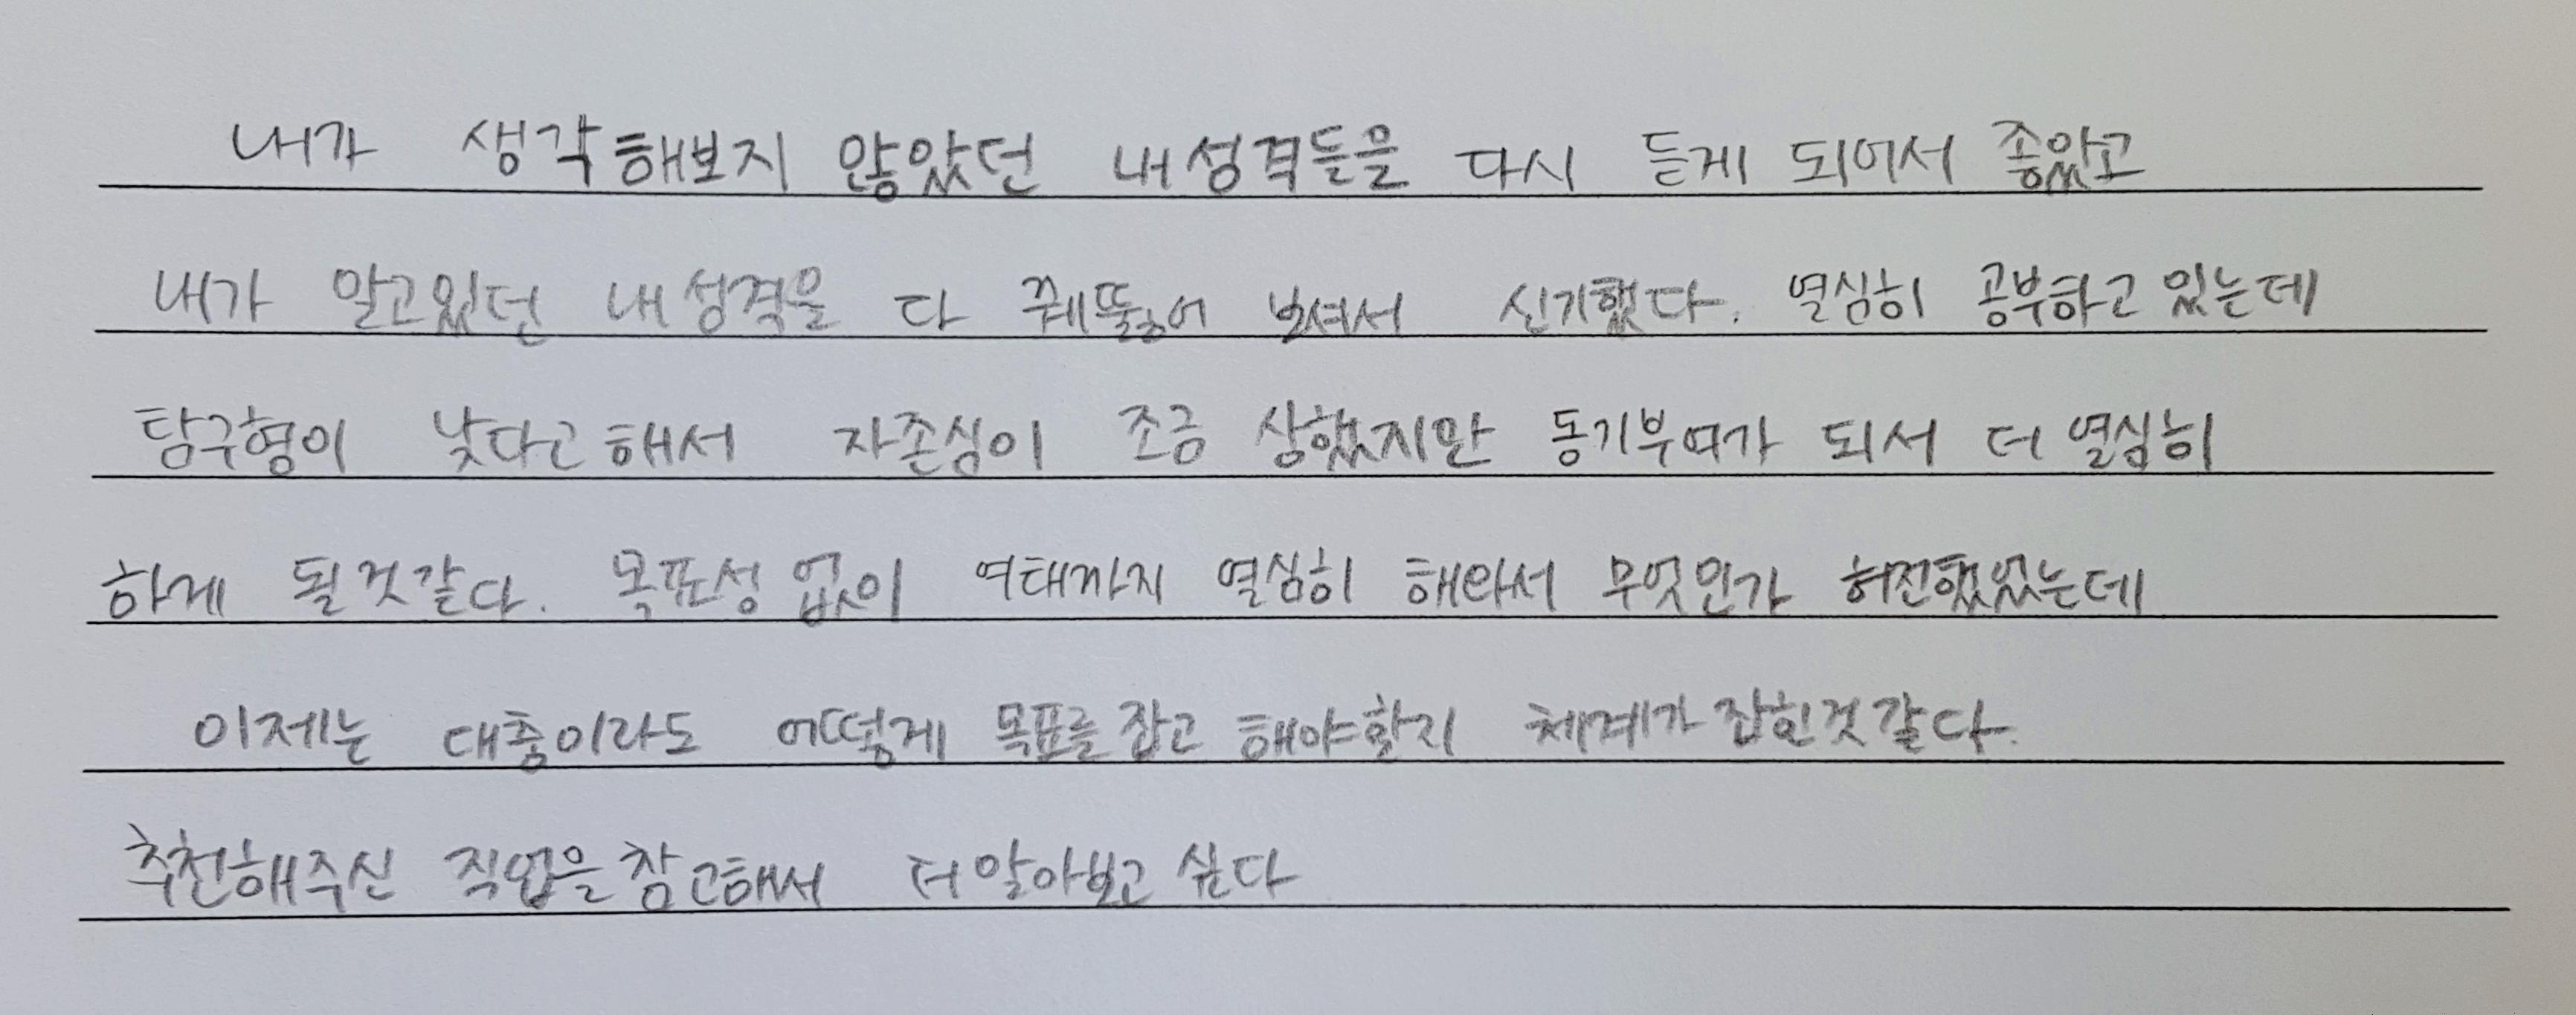 내가 생각해보지 않았던 내성격들을 다시 듣게 되어서 좋았고
내가 알고있던 내성격을 다 꿰뚫어 보셔서 신기했다. 열심히 공부하고있는데
탐구형이 낮다고해서 자존심이 조금 상했지만 동기부여가 되서 더 열심히
하게 될것같다. 목표성없이 여태까지 열심히 해와서 무엇인가 허전했었는데
이제는 대충이라도 어떻게 목표를잡고 해야할지 체계가잡힌것같다.
추천해주신 직업을참고해서 더알아보고싶다